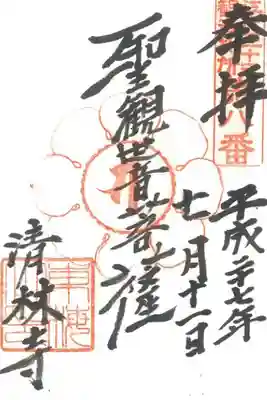 奉拝
八番
平成二十七年
七月十一日
聖観世音菩薩
清林寺